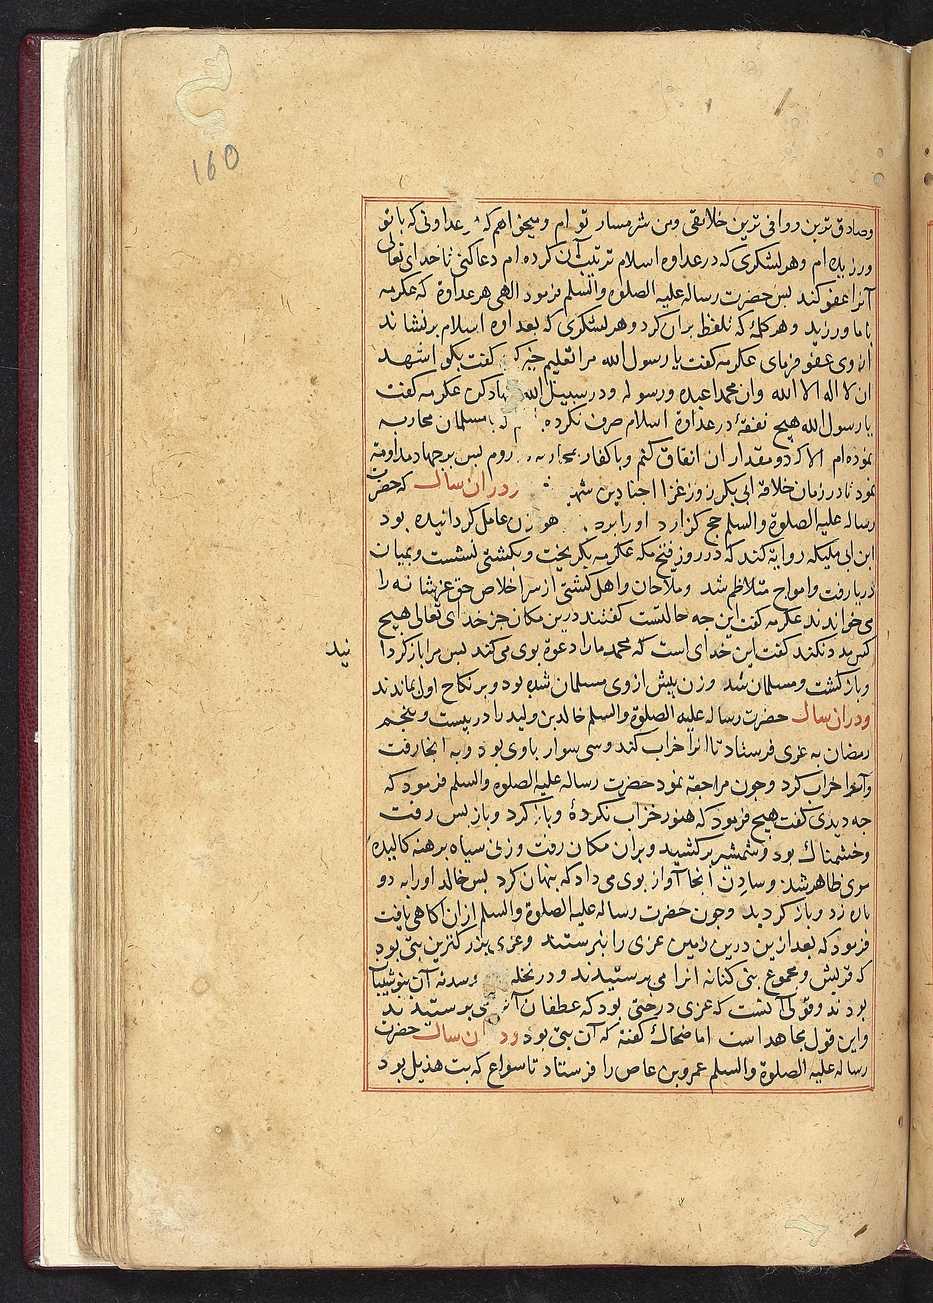 160
وصادق ترین و وافی ترین خلایقی ومن شرمسار تو ام ومیخواهم که هر عداوتی که با تو
ورزیده ام وهر لشکری که در عداوة اسلام ترتیب آن کرده ام دعا کنی تا خدای تعالی
آنرا عفو کند بس حضرت رسالة علیه الصلوة والسلم فرمود الهی هر عداوة که عکرمه
با ما ورزید وهر کلمۀ که تلفظ بران کرد وهر لشکری که بعداوة اسلام برنشاند
از وی عفو فرمای عکرمه کفت یا رسول الله مرا تعلیم خیر کن کفت بکو اشهد
ان لا اله الا الله وان محمدا عبده ورسوله ودر سبیل الله جهاد کن عکرمه کفت
یا رسول الله هیچ نفقۀ در عداوة اسلام صرف نکرده با مسلمان محاربه
نموده ام الا که دو مقدار ان انفاق کنم وبا کفار روم بس بر جهاد مداومة
نمود تا در زمان خلافة ابی بکر روز غزا اجنادین شهید ودران سال که حضرت
رسالة علیه الصلوة والسلم حج کزارد او را بر هوازن عامل کردانیده بود
ابن ابی ملیکه روایة کند که در روز فتح مکه عکرمه بکریخت وبکشتی نشست وبمیان
دریا رفت وامواج متلاطم شد وملاحان واهل کشتی از سر اخلاص حق عزشانه را
می خواندند عکرمه کفت این چه حالتست کفتند درین مکان جز خدای تعالی هیچ
کس مدد نکند کفت این خدای است که محمد ما را دعوة بوی می کند بس مرا باز کردا
نید
وباز کشت ومسلمان شد وزن پیش از وی مسلمان شده بود وبر نکاح اول بماندند
ودران سال حضرت رسالة علیه الصلوة والسلم خالد بن ولید را در بیست وپنجم
رمضان به عزی فرستاد تا انرا خراب کند وسی سوار با وی بود وبه انجا رفت
وآنرا خراب کرد وجون مراجعة نمود حضرت رسالة علیه الصلوة والسلم فرمود که
جه دیدی کفت هیچ فرمود که هنوز خراب نکردۀ وباز کرد وباز بس رفت
وخشمناک بود وشمشیر برکشید وبران مکان رفت وزنی سیاه برهنه کالیده
موی ظاهر شد وسادن آنجا آواز بوی می داد که پنهان کرد بس خالد او را به دو
باره زد وباز کردید وجون حضرت رسالة علیه الصلوة والسلم از ان اکاهی یافت
فرمود که بعد ازین درین زمین عزی را نپرستند وعزی بزرکترین بتی بود
که قریش ومجموع بنی کنانه انرا می پرستیدند ودر نخله وسدنه آن بنو شیبان
بودند وقولی آنکست که عزی درختی بود که غطفان آنرا می پرستیدند
واین قول مجاهد است اما ضحاک کفته که آن بتی بود ودران سال حضرت
رسالة علیه الصلوة والسلم عمرو بن عاص را فرستاد تا سواع که بت هذیل بود